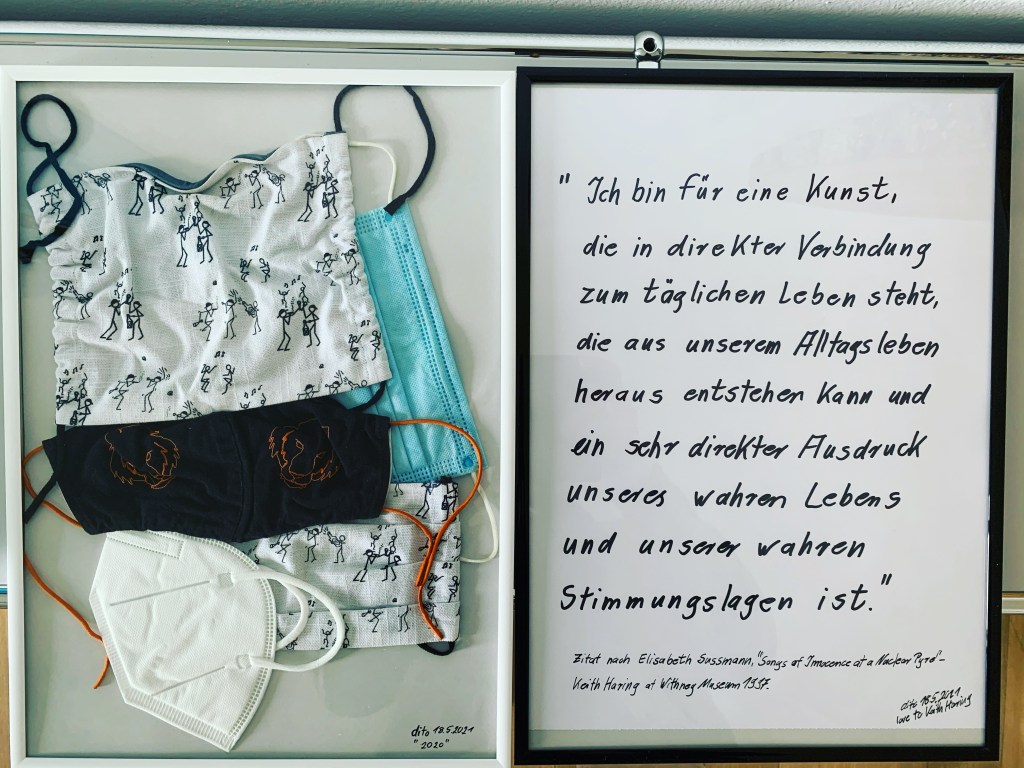 dito 18.5.2021
"2020"
" Ich bin für eine Kunst,
die in direkter Verbindung
zum täglichen Leben steht,
die aus unserem Alltagsleben
heraus entstehen kann und
ein sehr direkter Ausdruck
unseres wahren Lebens
und unserer wahren
Stimmungslagen ist."
Zitat nach Elisabeth Sussmann, "Songs of Innocence at a Nuclear Pyre"-
Keith Haring at Withney Museum 1997.
dito 18.5.2021
love to Keith Haring